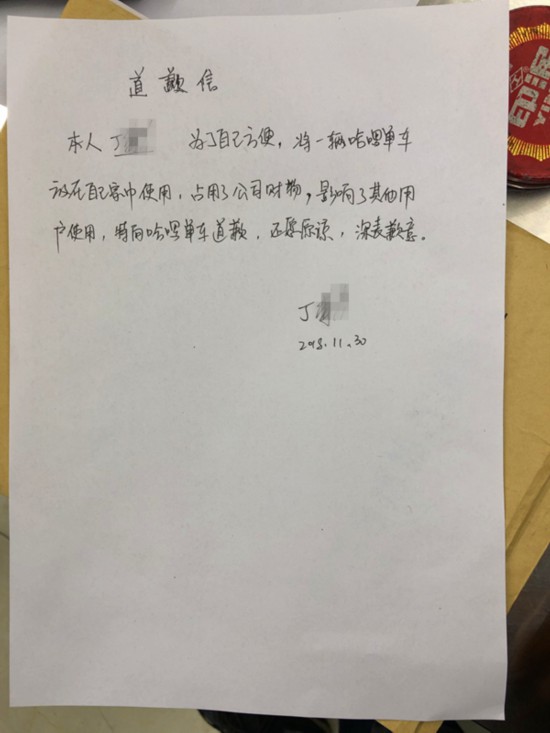 道歉信
本人丁 为了自己方便，将一辆哈啰单车
放在自己家中使用，占用了公司财物，影响了其他用
户使用，特向哈啰单车道歉，还愿原谅，深表歉意。
丁
2018.11.30